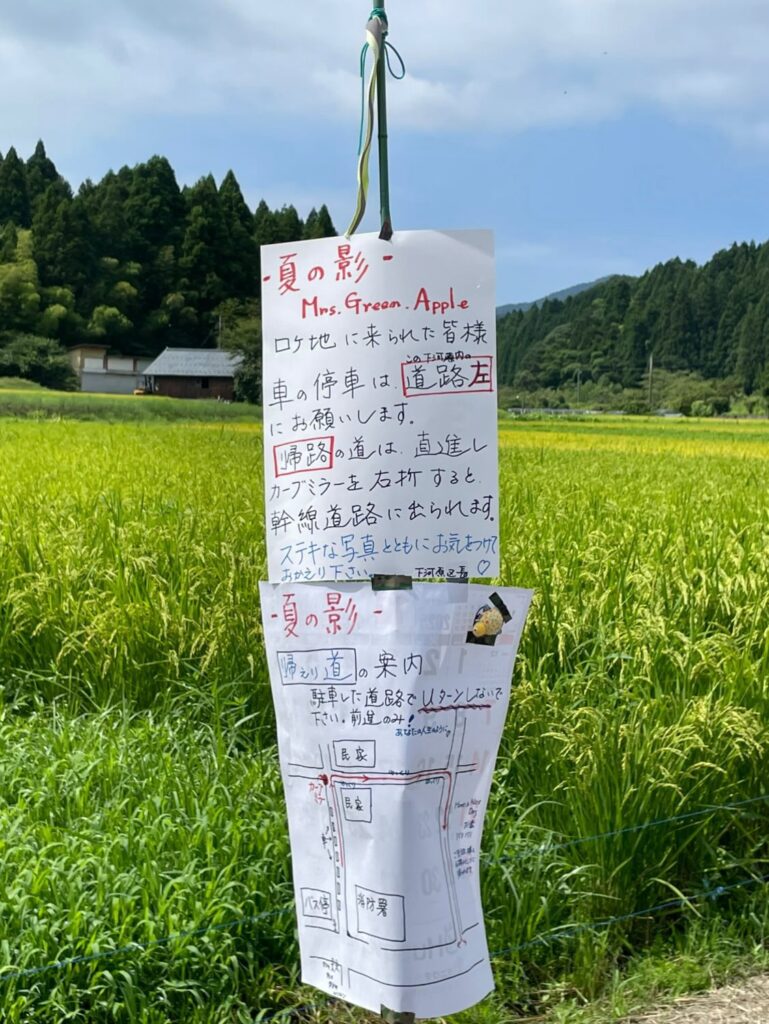 -夏の影-
Mrs. Green. Apple
ロケ地に来られた皆様
この下河原内の
車の停車は、道路左
にお願いします。
帰路の道は、直進し
カーブミラーを右折すると、
幹線道路に出られます。
ステキな写真とともにお気をつけて
おかえり下さい。 下河原区長 ♡
-夏の影-
帰えり道の案内
駐車した道路でUターンしないで
下さい。前進のみ!
あなたの人生のように
民家
ゆっくり
カーブミラー
民家
Have a Nice
Day
バス停
消防署